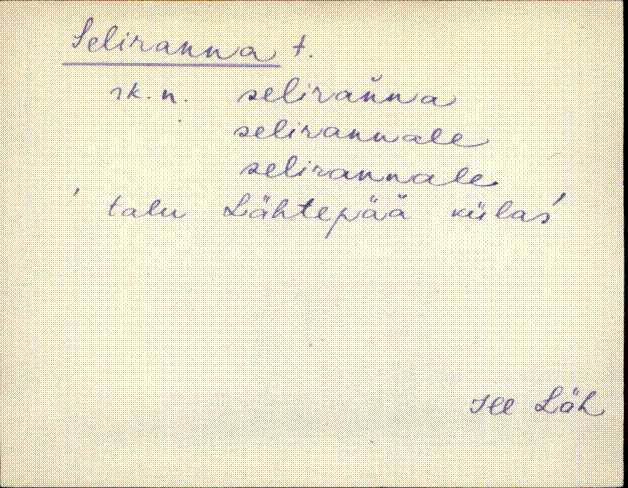 Seliranna t.
rk. n. seliran̆na
selirannale
selirannale
' talu Lähtepää külas'
Jll Läh